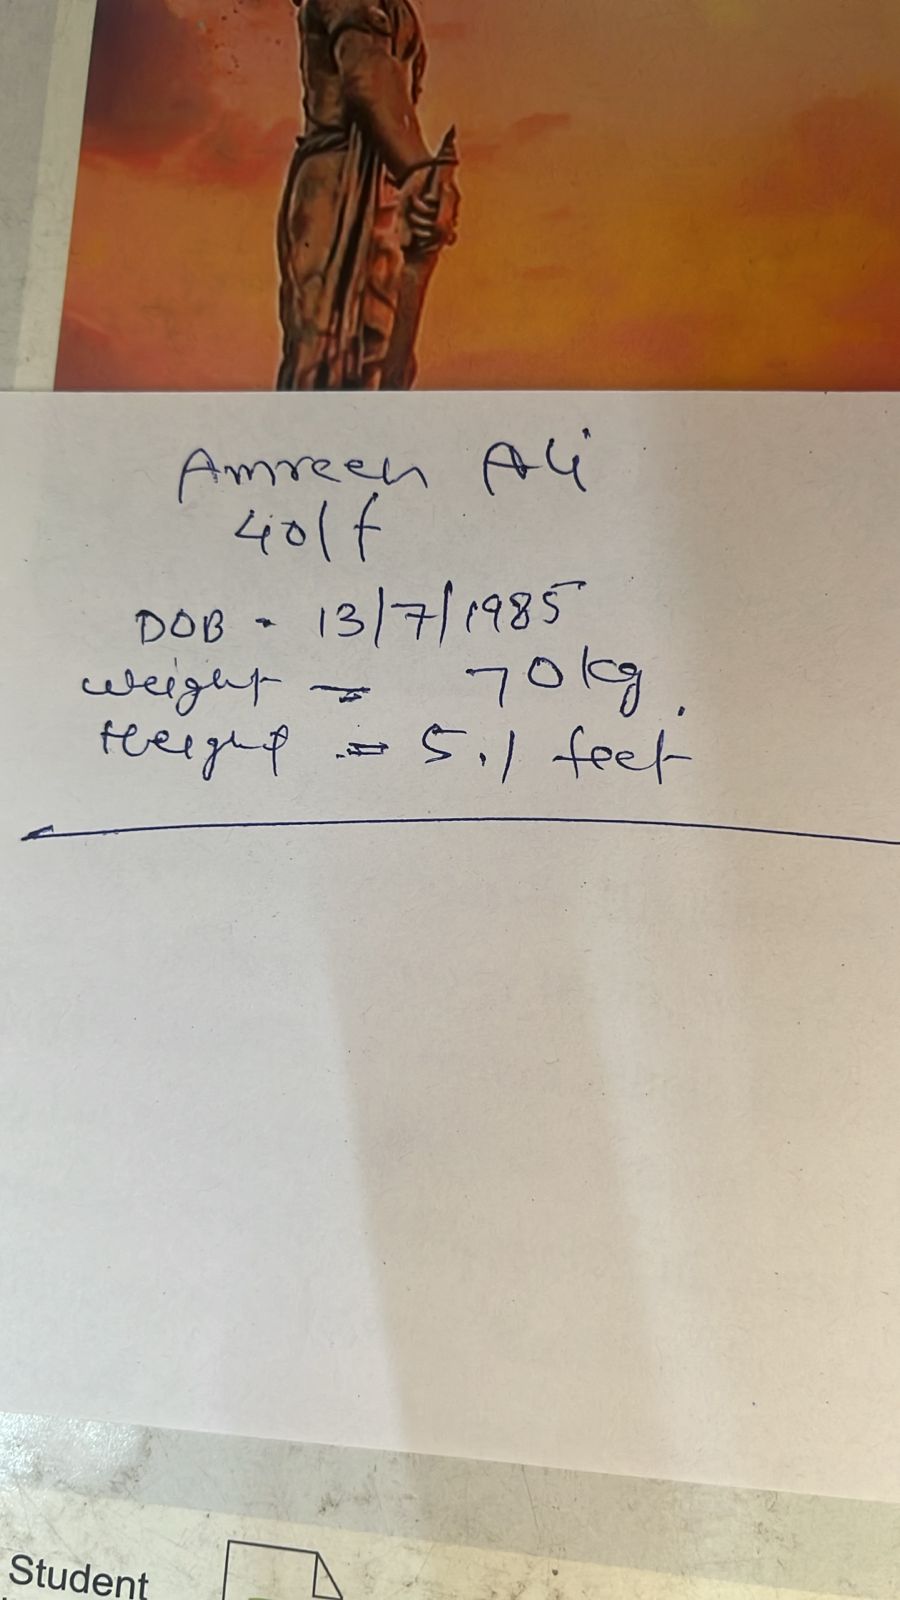 Amreen Ali
40/f
DOB - 13/7/1985
weight = 70kg.
Height = 5.1 feet
Student